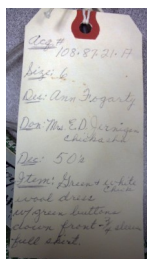 Acq #
108-87-21-A
Size: 6
Des: Ann Fogarty
Don: Mrs. E.D.
Chickasha
Dec: 50's
Item: Green & white
wool dress
w/green buttons
down front-3/4 sleeve
full skirt.